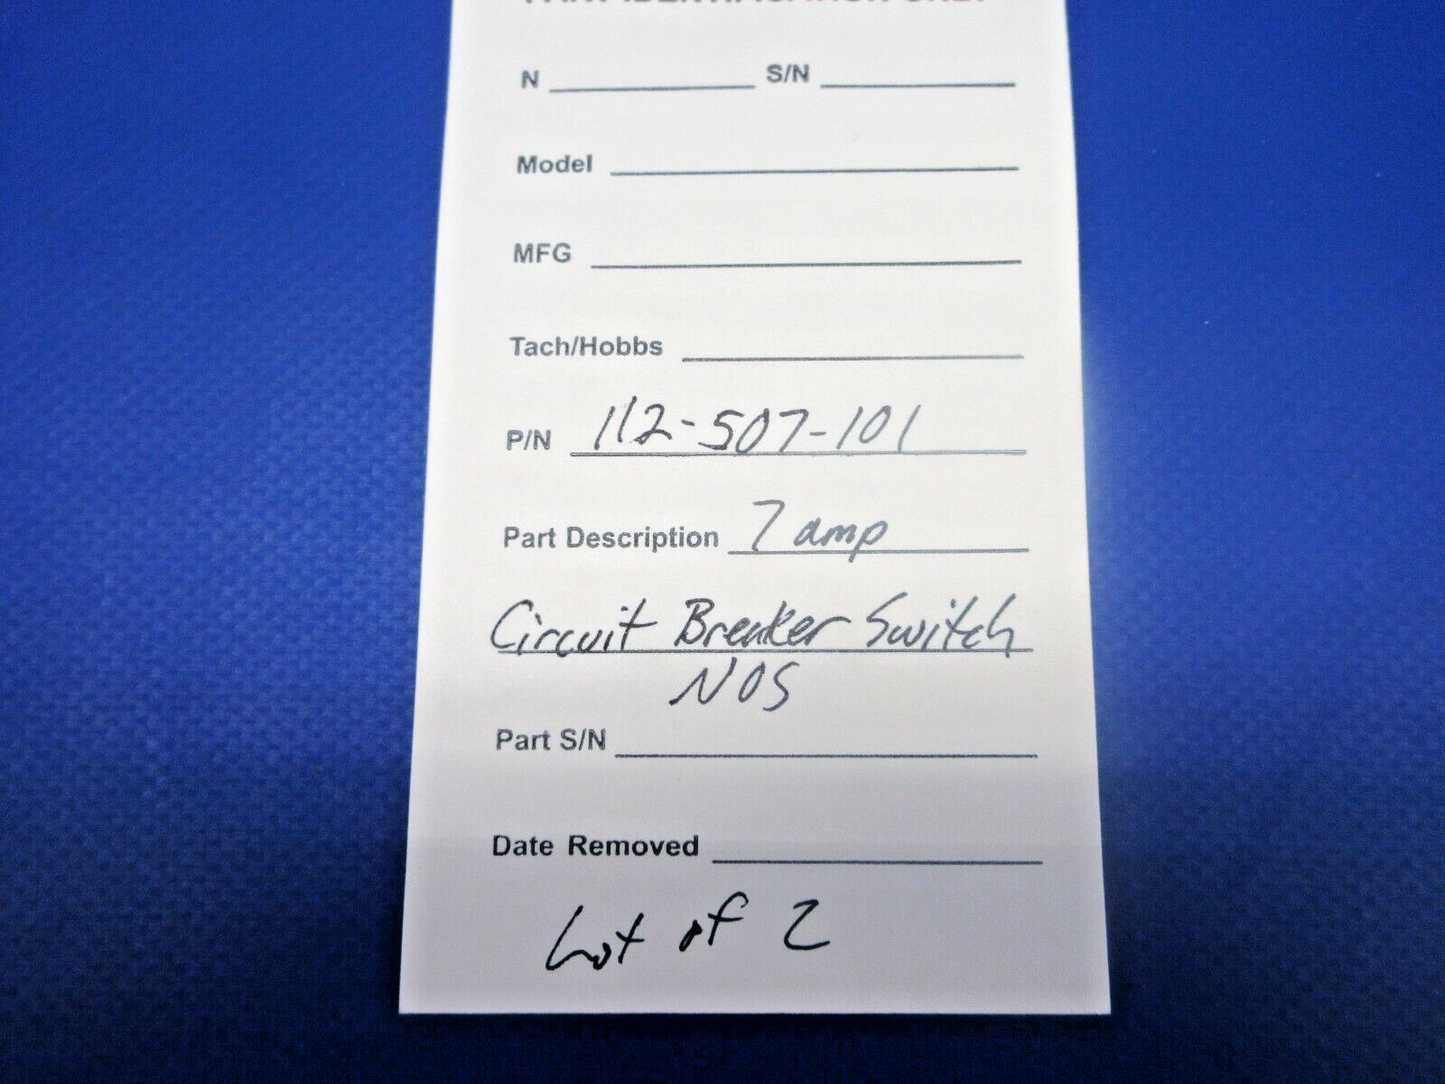 PART IDENTIFICATION ONLY
N S/N
Model
MFG
Tach/Hobbs
P/N 112-507-101
Part Description 7 amp
Circuit Breaker Switch
NOS
Part S/N
Date Removed
Lot of 2